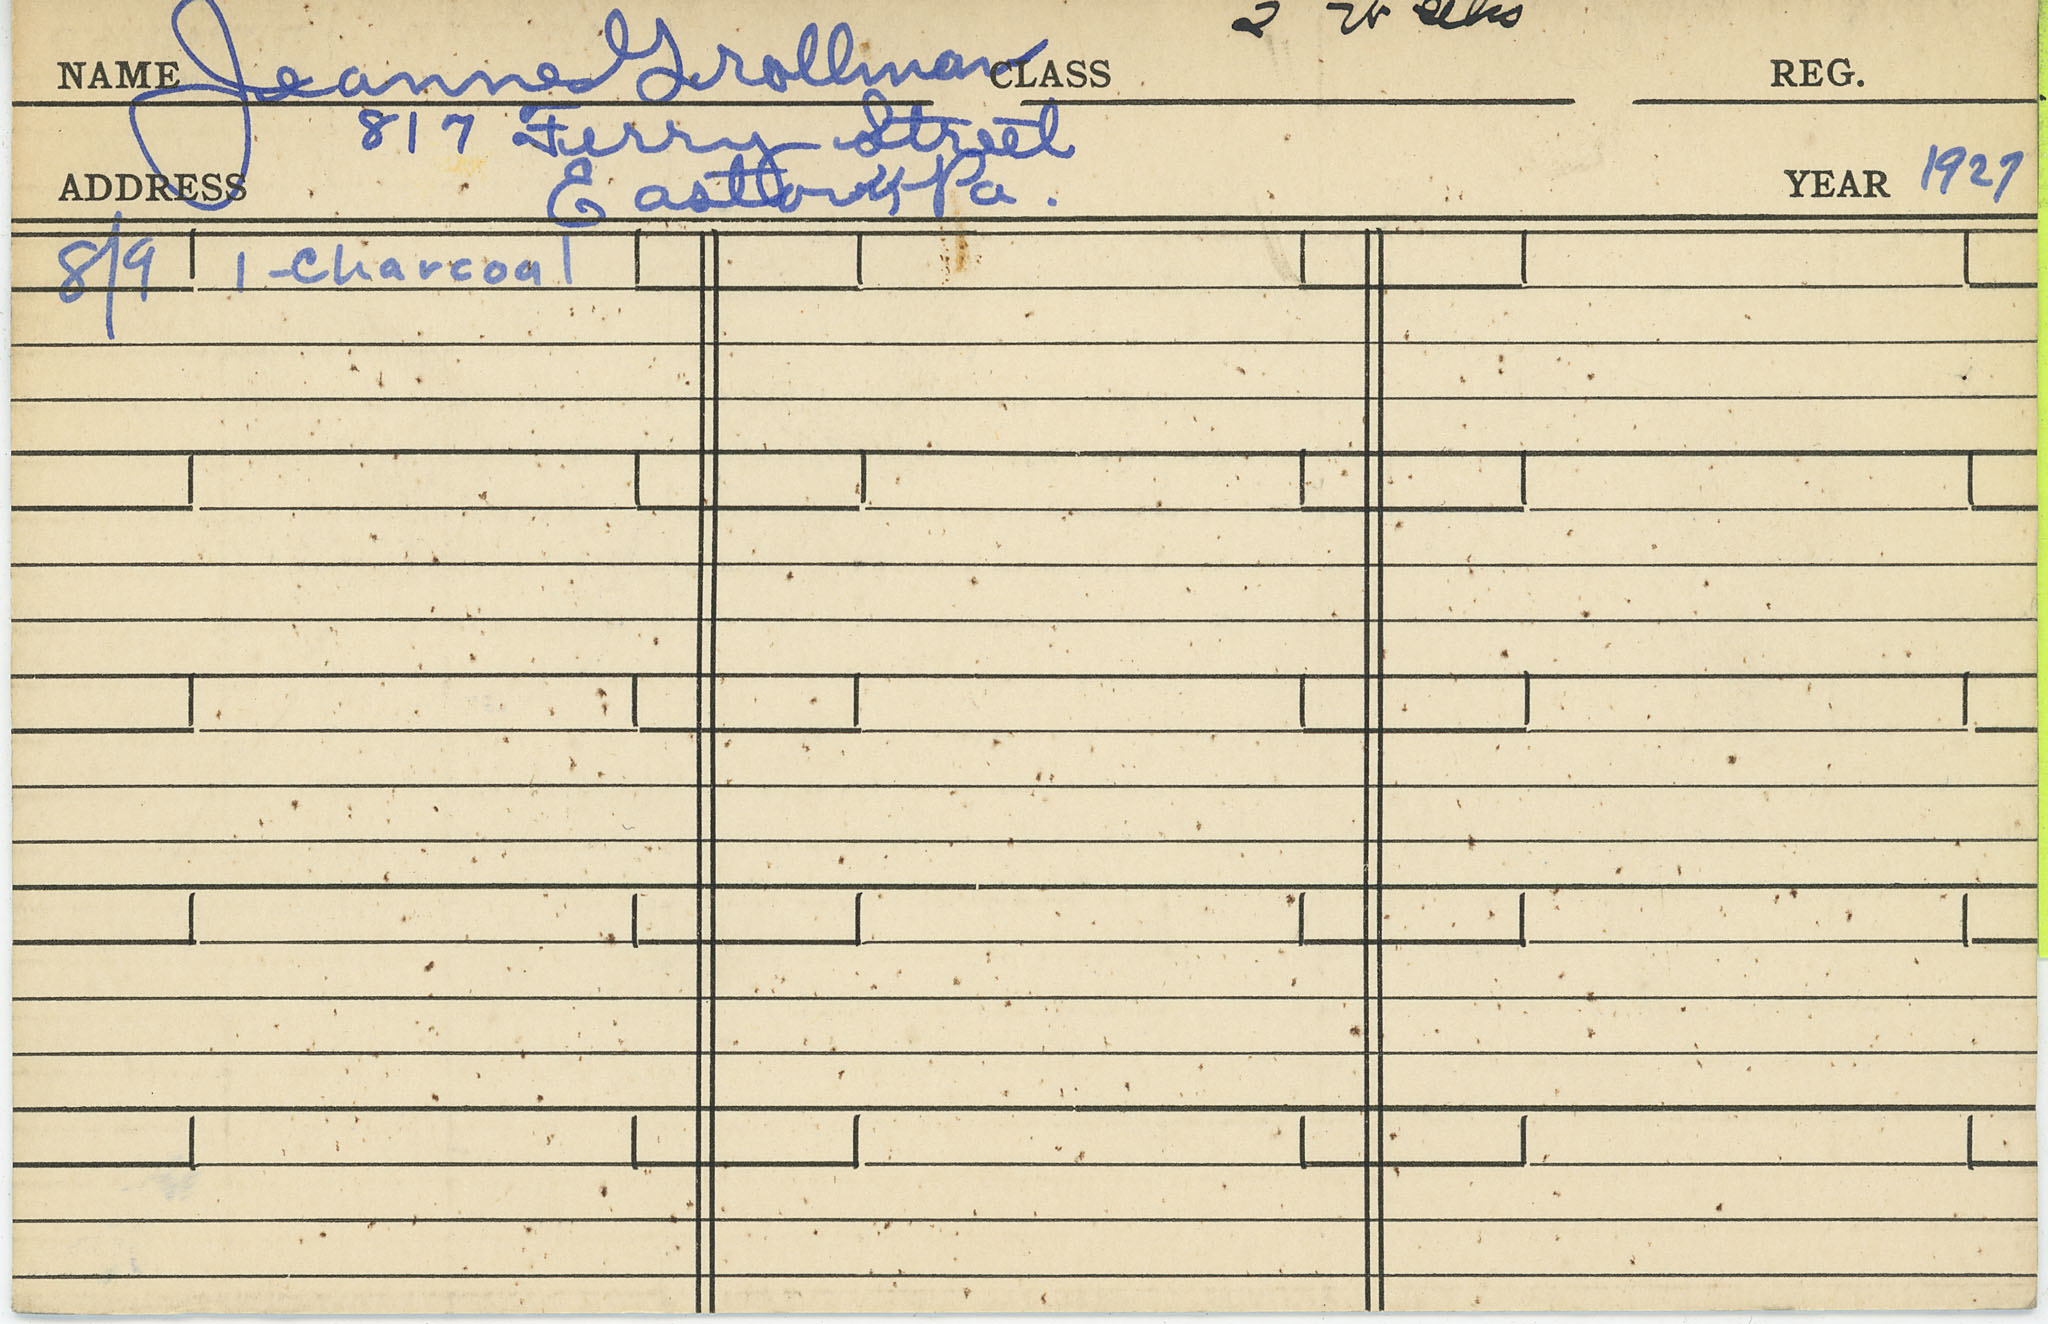 2 weeks
NAME Jeanne Grollman CLASS REG.
817 Ferry Street
ADDRESS Easton Pa. YEAR 1927
8/9 1 Charcoal